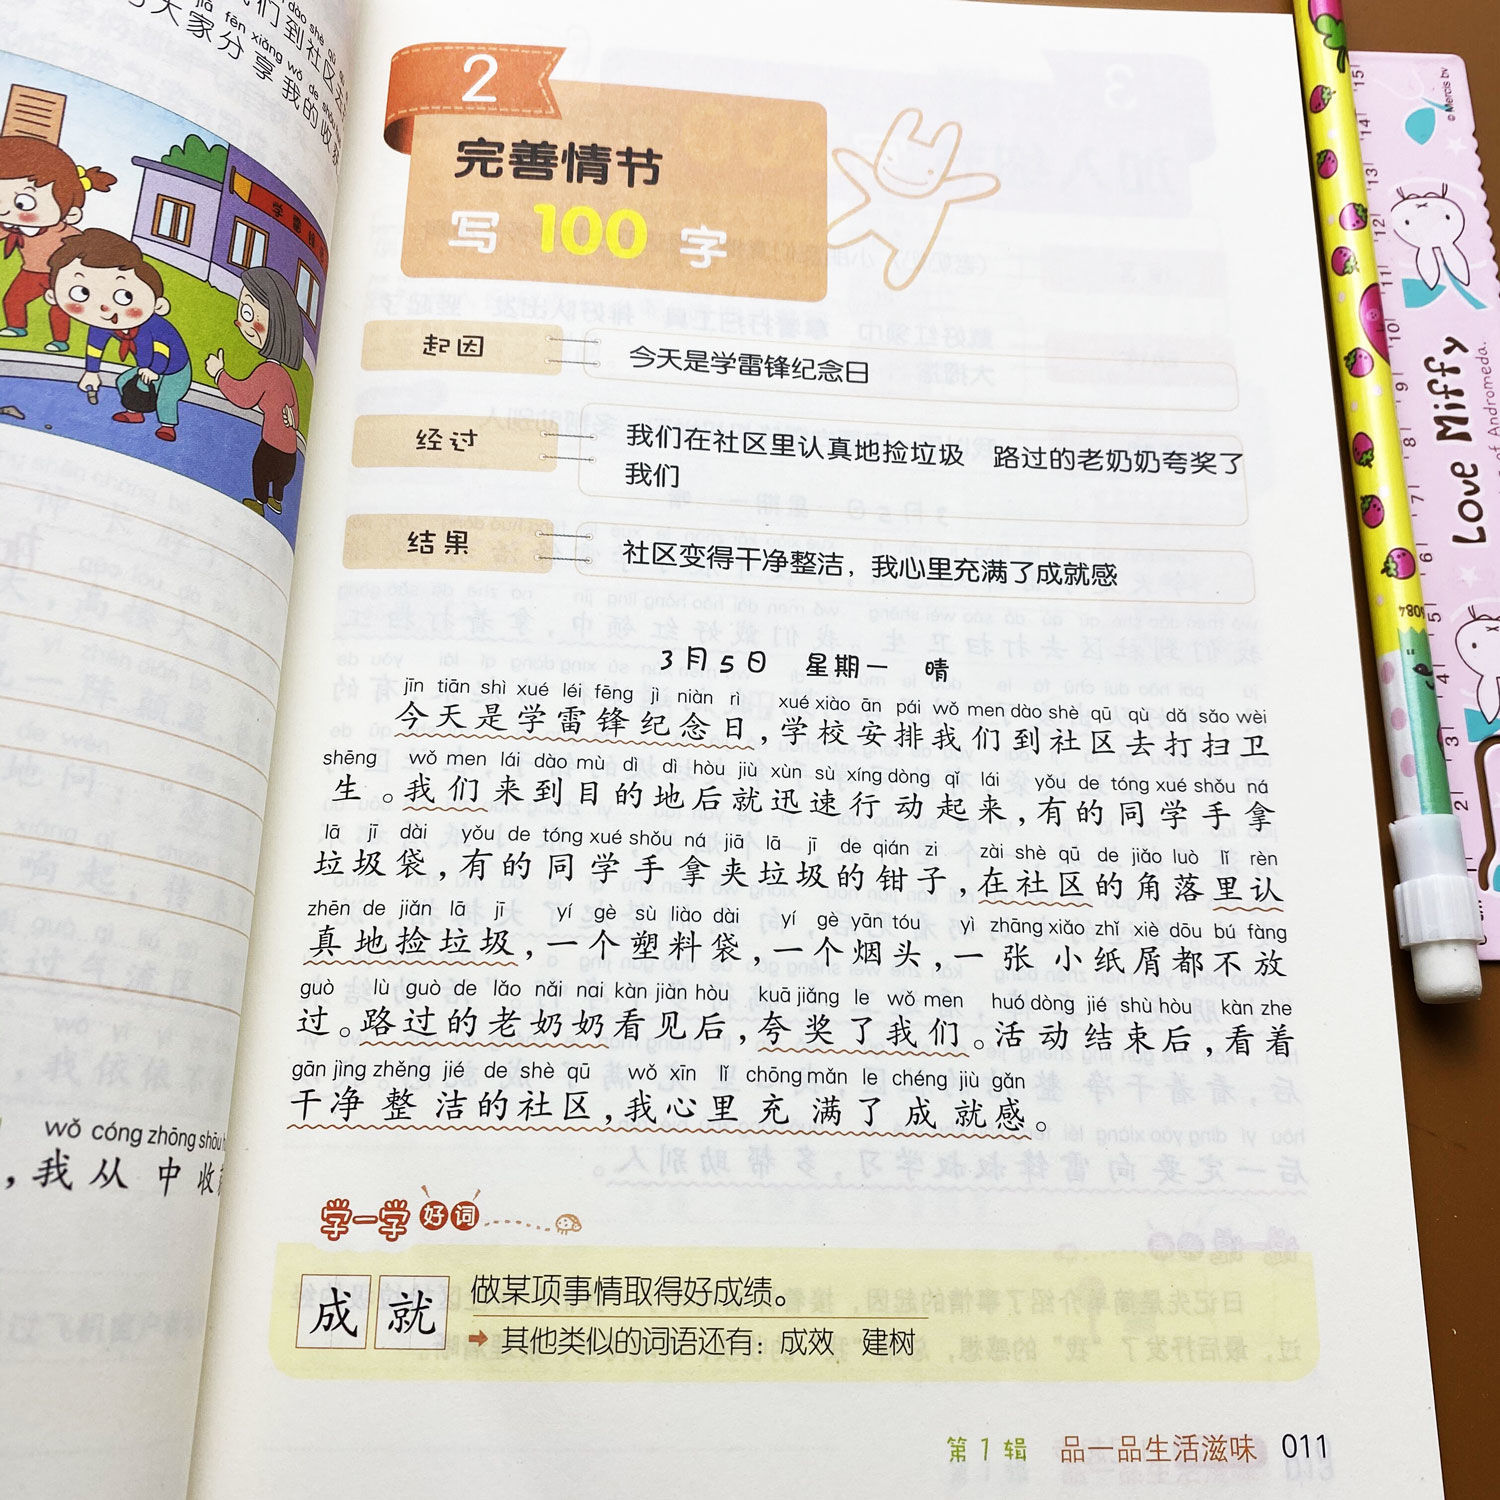 们到社区
大家分享我的收获
学雷锋
wǒ cóng zhōng shōu
，我从中收
2
完善情节
写100字
起因
今天是学雷锋纪念日
经过
我们在社区里认真地捡垃圾 路过的老奶奶夸奖了
我们
结果
社区变得干净整洁，我心里充满了成就感
3月5日 星期一 晴
jīn tiān shì xué léi fēng jì niàn rì xué xiào ān pái wǒ men dào shè qū qù dǎ sǎo wèi
今天是学雷锋纪念日，学校安排我们到社区去打扫卫
shēng wǒ men lái dào mù dì dì hòu jiù xùn sù xíng dòng qǐ lái yǒu de tóng xué shǒu ná
生。我们来到目的地后就迅速行动起来，有的同学手拿
lā jī dài yǒu de tóng xué shǒu ná jiā lā jī de qián zi zài shè qū de jiǎo luò lǐ rèn
垃圾袋，有的同学手拿夹垃圾的钳子，在社区的角落里认
zhēn de jiǎn lā jī yí gè sù liào dài yí gè yān tóu yì zhāng xiǎo zhǐ xiè dōu bú fàng
真地捡垃圾，一个塑料袋，一个烟头，一张小纸屑都不放
guò lù guò de lǎo nǎi nai kàn jiàn hòu kuā jiǎng le wǒ men huó dòng jié shù hòu kàn zhe
过。路过的老奶奶看见后，夸奖了我们。活动结束后，看着
gān jìng zhěng jié de shè qū wǒ xīn lǐ chōng mǎn le chéng jiù gǎn
干净整洁的社区，我心里充满了成就感。
学一学好词
成就
做某项事情取得好成绩。
其他类似的词语还有：成效 建树
第1辑 品一品生活滋味 011
© Mercis bv
Love Miffy
of Andromeda.
6084
15 14 13 12 11 10 9 8 7 6 5 3 2